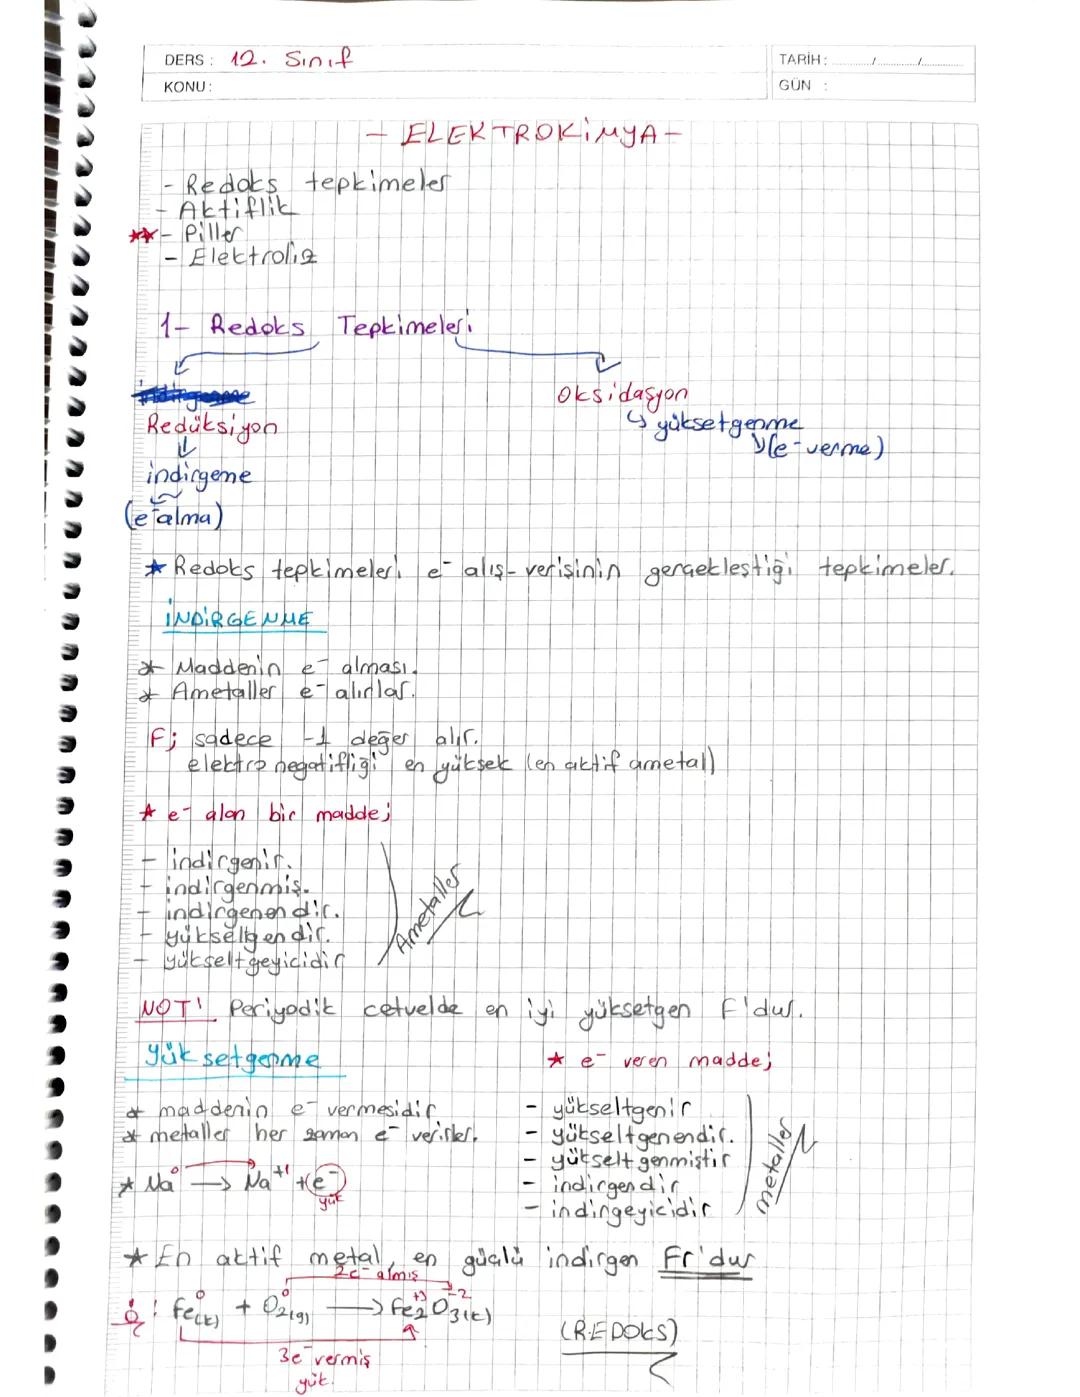 DERS : 12. Sınıf
TARİH: ......./......./.......
KONU:
GÜN :
- ELEKTROKİMYA -
- Redoks tepkimeler
- Aktiflik
** - Piller
- Elektroliz
1- Redoks Tepkimeleri
Redüksiyon
↓
indirgeme
(e⁻ alma)
Oksidasyon
↳ yüksetgenme
↳(e⁻ verme)
* Redoks tepkimeleri e⁻ alış-verişinin gerçekleştiği tepkimeler.
İNDİRGENME
* Maddenin e⁻ alması.
* Ametaller e⁻ alırlar.
F; sadece -1 değer alır.
elektronegatifliği en yüksek (en aktif ametal)
* e⁻ alan bir madde;
- indirgenir.
- indirgenmiş.
- indirgenendir.
- yükseltgendir.
- yükseltgeyicidir
Ametaller
NOT! Periyodik cetvelde en iyi yüksetgen F'dur.
Yüksetgenme
* maddenin e⁻ vermesidir
* metaller her zaman e⁻ verirler.
* Na⁰ → Na⁺¹ + e⁻
yük
* e⁻ veren madde;
- yükseltgenir
- yükseltgenendir.
- yükseltgenmiştir
- indirgendir
- indirgeyicidir
metaller
* En aktif metal, en güçlü indirgen Fr'dur
2e⁻ almış
Ö: Fe⁰(k) + O₂⁰(g) → Fe₂⁺³O₃⁻²(k)
3e⁻ vermiş
yük.
(REDOKS)